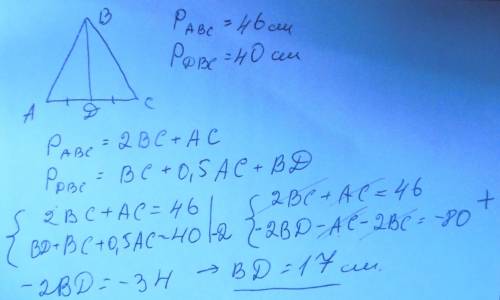 B
P_ABC = 46 см
P_DBC = 40 см
A D C
P_ABC = 2BC + AC
P_DBC = BC + 0,5AC + BD
{ 2BC + AC = 46
BD + BC + 0,5AC = 40 |·-2
{ 2BC + AC = 46
-2BD - AC - 2BC = -80 +
-2BD = -34 → BD = 17 см.